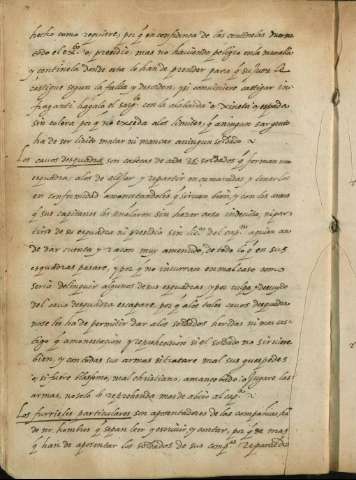 hecho como requiere, porq̃ en confiança de las centinelas duerme
todo el exto o presidio, mas no haciendo peligro en la muralla
y centinela donde esta lo han de prender para q̃ su Juez le
castigue segun la falta y descuydo, y si conviniere castigar in
fraganti hagalo el sargto con la alabarda o gineta o espada
sin colera porq̃ no exceda a los limites, q̃ a ningun sargento
ha de ser licito matar ni mancar a ningun soldado
Los cavos desquadra son cabeças de cada 25 soldados q̃ forman una
esquadra, a los de alojar y repartir en camaradas y tenerlos
en conformidad amonestandoles q̃ sirvan bien, y con las armas
q̃ sus capitanes les señalaren sin hazer otra
de su esquadra ni presidio sin licia del capn a quien an
de dar cuenta y razon muy amenudo, de todo lo q̃ en sus
esquadras pasare, y porq̃ no incurran en mal caso como
seria delinquir alguno de sus esquadras, y por culpa o descuydo
del cavo desquadra escapare, porq̃ a los tales cavos desquadra
no se les ha de permitir dar a los soldados heridas ni mas cas
tigo q̃ amonestacion y reprehension si el soldado no sirviere
bien, y con todas sus armas si tratare mal sus guespedes
o si fuere blasfemo, mal christiano, amancebado o jugare las
armas, no solo le reprehenda mas de aviso al capn
Los furrieles particulares son aposentadores de las compañias, han
de ser hombres q̃ sepan leer y escrivir, y contar, porq̃ de mas
q̃ han de aposentar los soldados de sus compas repartiendo